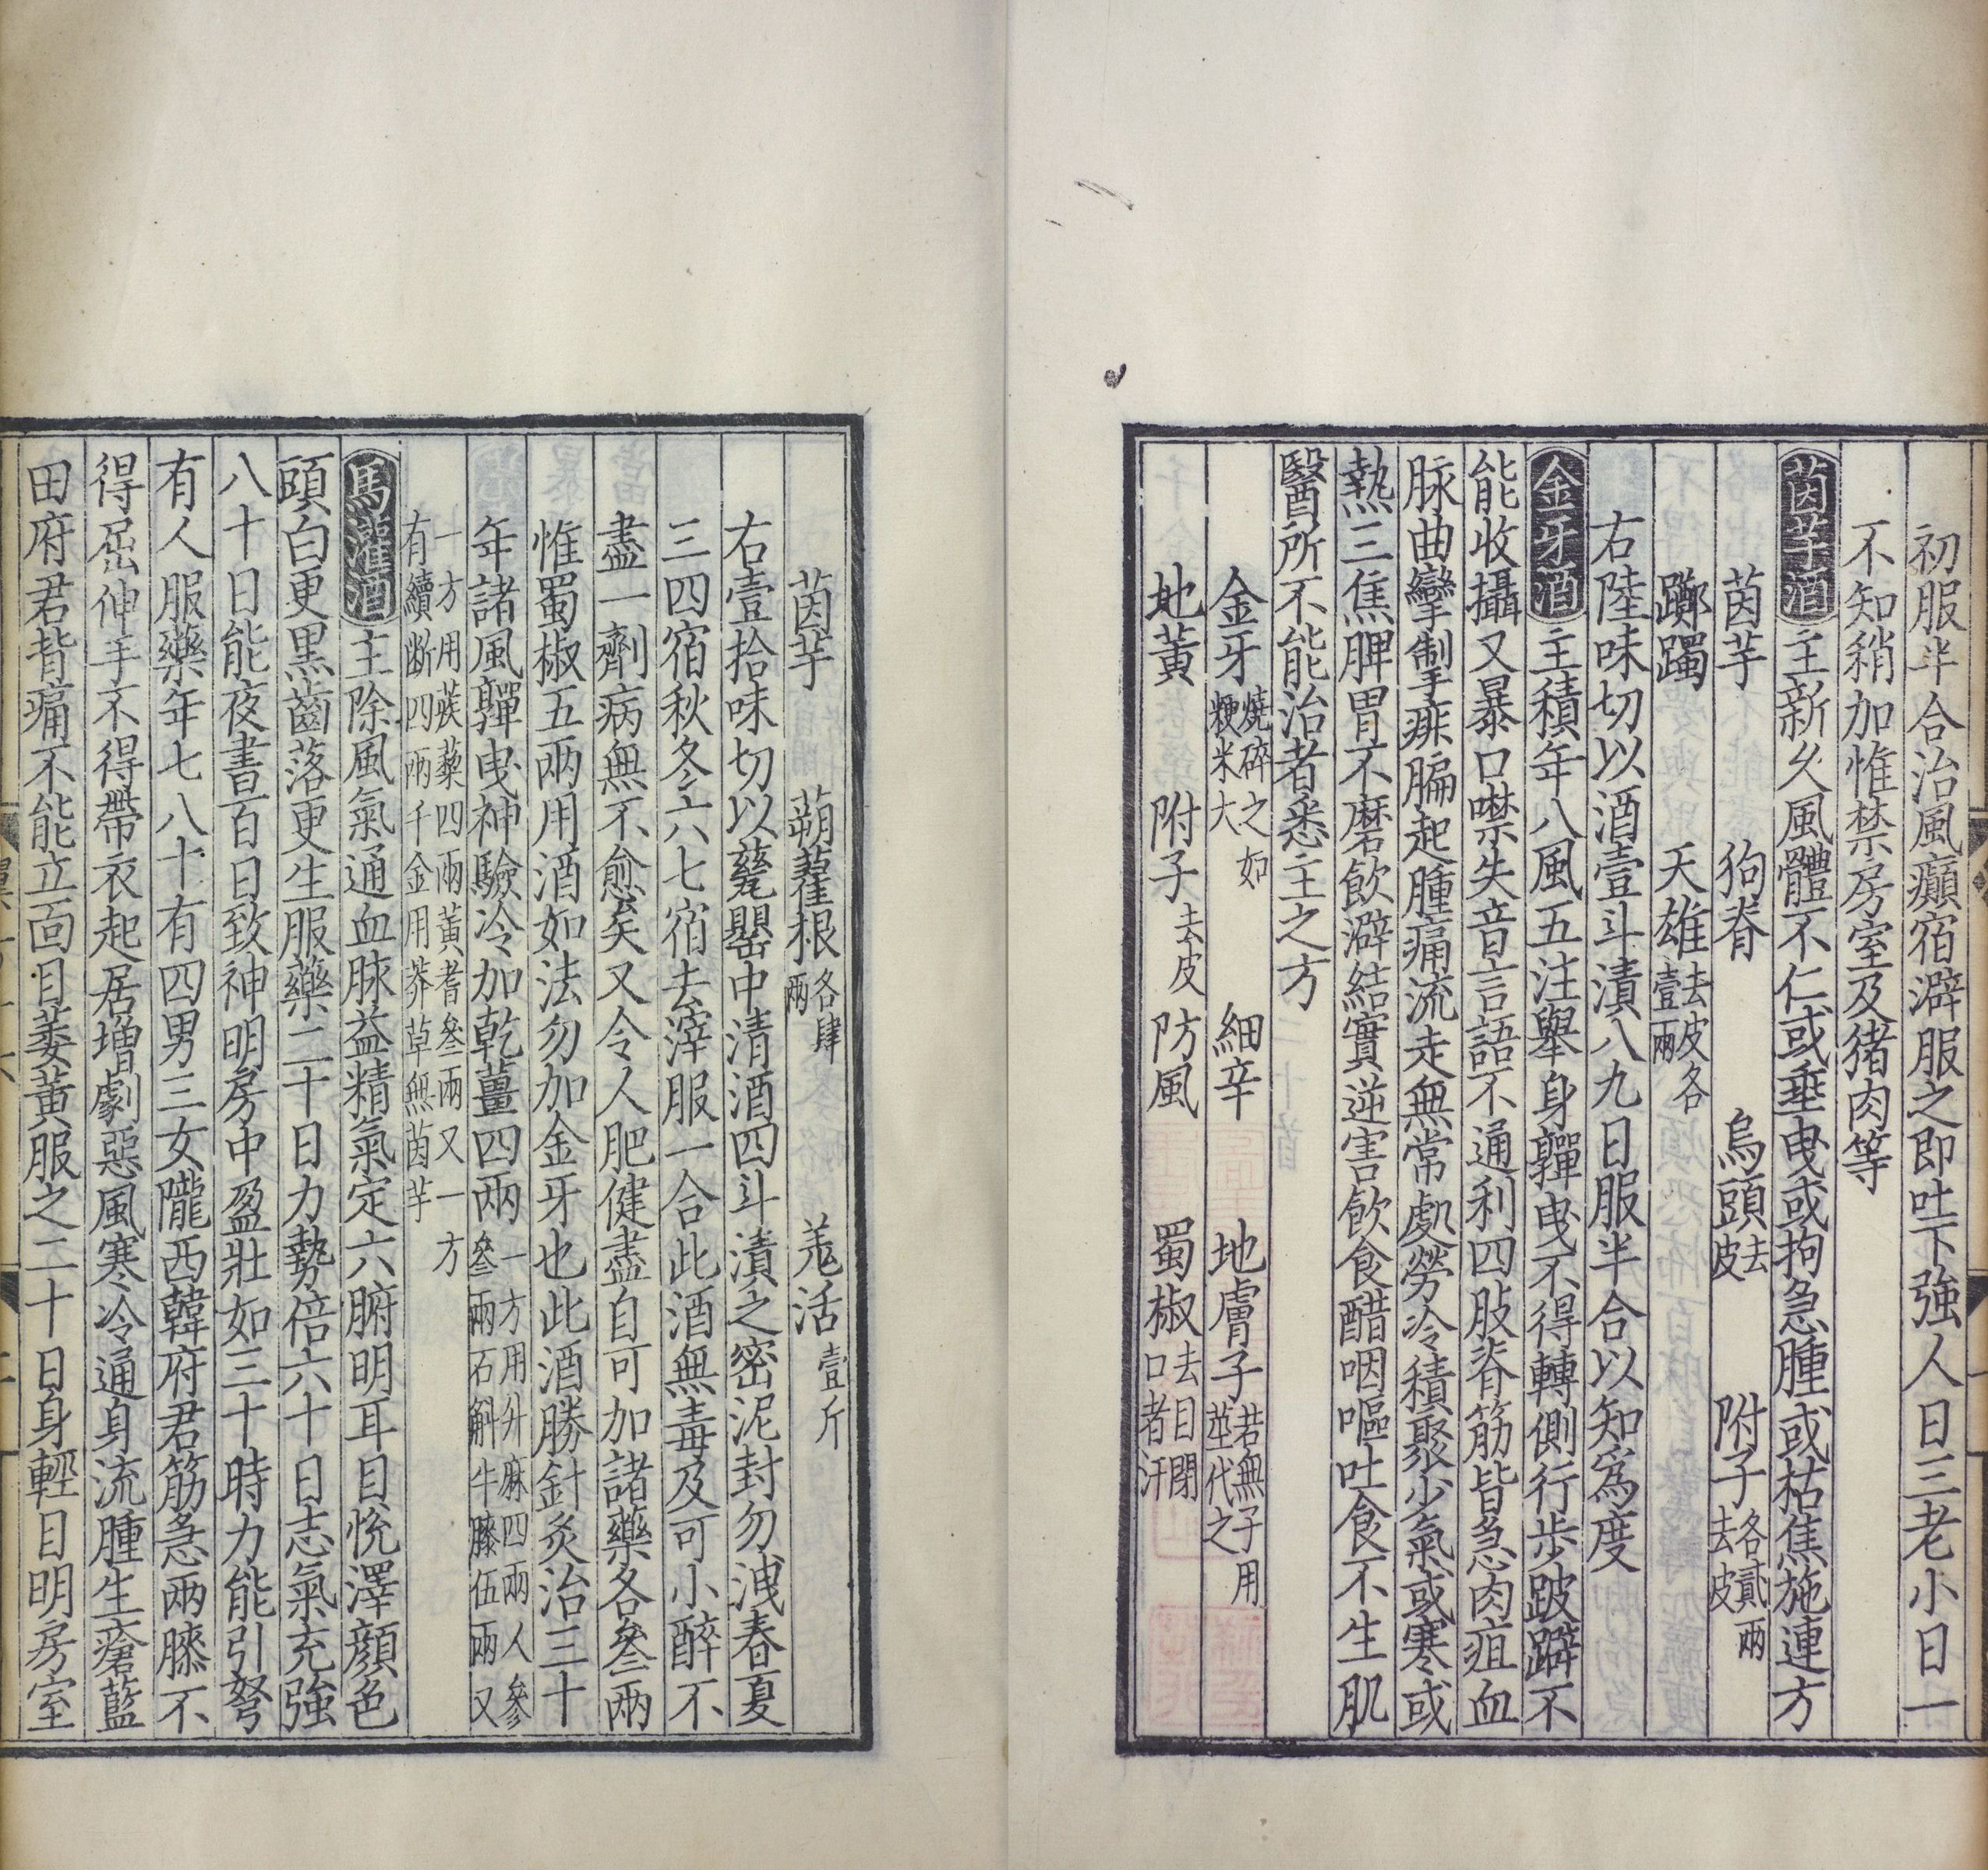 初服半合治風癲宿澼服之即吐下強人日三老小日一
不知稍加惟禁房室及猪肉等
茵芋酒主新久風體不仁或垂曳或拘急腫或枯焦施連方
茵芋 狗脊 烏頭去皮 附子各貳兩去皮
躑躅 天雄去皮各壹兩
右陸味切以酒壹斗漬八九日服半合以知爲度
金牙酒主積年八風五注舉身軃曳不得轉側行步跛躃不
能收攝又暴口噤失音言語不通利四肢脊筋皆急肉疽血
脉曲攣掣痱腨起腫痛流走無常處勞冷積聚少氣或寒或
熱三焦脾胃不磨飲澼結實逆害飲食醋咽嘔吐食不生肌
醫所不能治者悉主之方
金牙燒碎之如粳米大 細辛 地膚子若無子用莖代之
地黃 附子去皮 防風 蜀椒去目閉口者汗
茵芋 蒴藋根各肆兩 羗活壹斤
右壹拾味切以薿甖中清酒四斗漬之密泥封勿洩春夏
三四宿秋冬六七宿去滓服一合此酒無毒及可小醉不
盡一劑病無不愈矣又令人肥健盡自可加諸藥各叄兩
惟蜀椒五兩用酒如法勿加金牙也此酒勝針灸治三十
年諸風軃曳神驗冷加乾薑四兩一方用升麻四兩人參叄兩石斛牛膝伍兩又
一方用蒺藜四兩黃耆叄兩又一方
有續斷四兩千金用莽草無茵芋
馬灌酒主除風氣通血脉益精氣定六腑明耳目悅澤顏色
頭白更黑齒落更生服藥二十日力勢倍六十日志氣充強
八十日能夜書百日致神明房中盈壯如三十時力能引弩
有人服藥年七八十有四男三女隴西韓府君筋急兩膝不
得屈伸手不得帶衣起居增劇惡風寒冷通身流腫生瘡藍
田府君背痛不能立面目萎黃服之二十日身輕目明房室